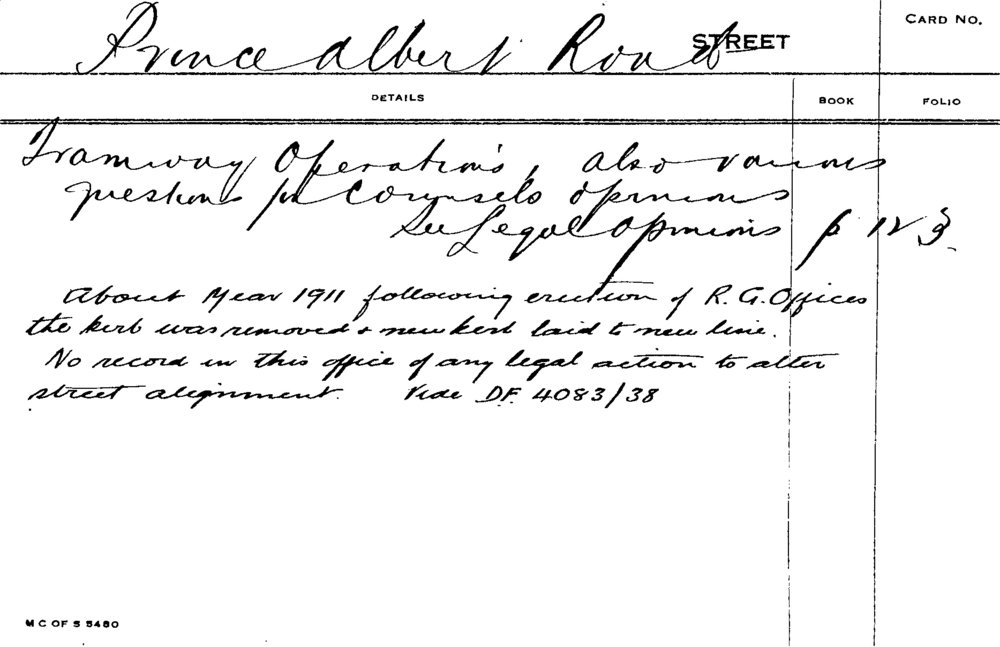 CARD NO.
Prince Albert Road STREET
DETAILS BOOK FOLIO
Tramway Operations, also various
questions for Counsels opinions
See Legal Opinions p 123.
About Year 1911 following erection of R.G. Offices
the kerb was removed & new kerb laid to new line.
No record in this office of any legal action to alter
street alignment. Vide DF. 4083/38
M C OF S 5480